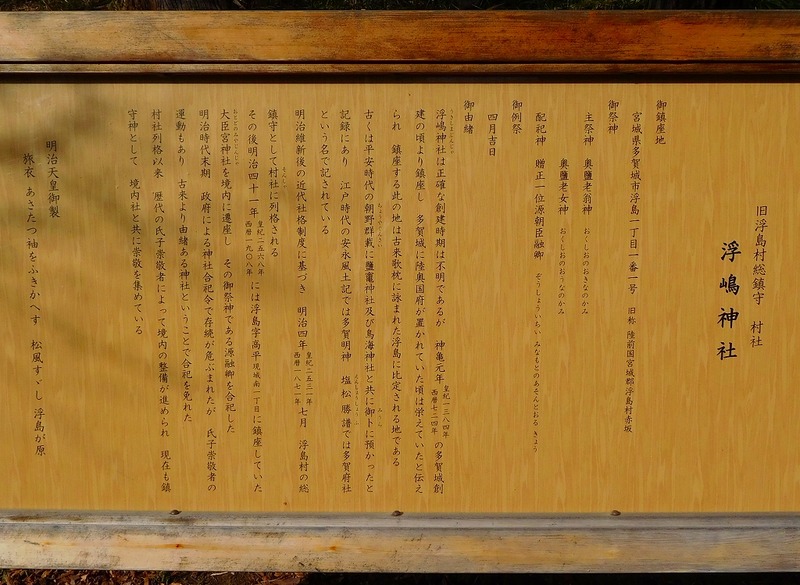 旧浮島村総鎮守　村社
浮嶋神社
御鎮座地
宮城県多賀城市浮島一丁目一番一号　旧称　陸前国宮城郡浮島村赤坂
御祭神
主祭神　奥鹽老翁神　おくしおのおきなのかみ
奥鹽老女神　おくしおのおうなのかみ
配祀神　贈正一位源朝臣融卿　ぞうしょういちい　みなもとのあそんとおる　きょう
御例祭
四月吉日
御由緒
浮嶋神社は正確な創建時期は不明であるが　神亀元年　皇紀一三八四年　西暦七二四年　の多賀城創
建の頃より鎮座し　多賀城に陸奥国府が置かれていた頃は栄えていたと伝え
られ　鎮座する此の地は古来歌枕に詠まれた浮島に比定される地である
古くは平安時代の朝野群載に鹽竈神社及び鳥海神社と共に御卜に預かったと
記録にあり　江戸時代の安永風土記では多賀明神　塩松勝譜では多賀府社
という名で記されている
明治維新後の近代社格制度に基づき　明治四年　皇紀二五三一年　西暦一八七一年　七月　浮島村の総
鎮守として村社に列格される
その後明治四十一年　皇紀二五六八年　西暦一九〇八年　には浮島字高平　現城南一丁目　に鎮座していた
大臣宮神社を境内に遷座し　その御祭神である源融卿を合祀した
明治時代末期　政府による神社合祀令で存続が危ぶまれたが　氏子崇敬者の
運動もあり　古来より由緒ある神社ということで合祀を免れた
村社列格以来　歴代の氏子崇敬者によって境内の整備が進められ　現在も鎮
守神として　境内社と共に崇敬を集めている
明治天皇御製
旅衣　あさたつ袖をふきかへす　松風すゞし　浮島が原